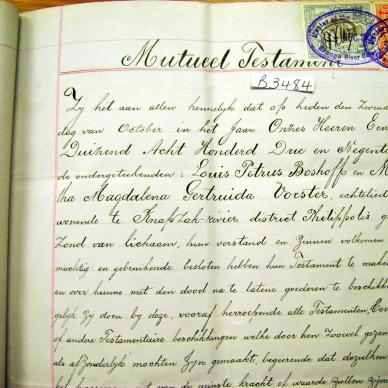 Mutueel Testament
B3484
Zy het aan allen kennelyk dat op heden den Zevende
dag van October in het Jaar Onzes Heeren Een
Duizend Acht Honderd Drie en Negent
de ondergetekenden : Louis Petrus Boshoff en M
tha Magdalena Gertruida Vorster, echtelied
wonende te Knapzak-rivier district Philippolis g
Zond van lichaam, hun verstand en Zinnen volkomen
machtig en gebruikende besloten hebben hun Testament te make
en over hunne met den dood na te latene goederen te beschikk
gelyk Zy doen by deze, vooraf herroepende alle Testamenten, Co
of andere Testamentaire beschikkingen welke door hen Zoowel gezam
als afzonderlyk mochten Zyn gemaakt, begeerende dat dezelve
van de minste kracht of waarde zullen zyn